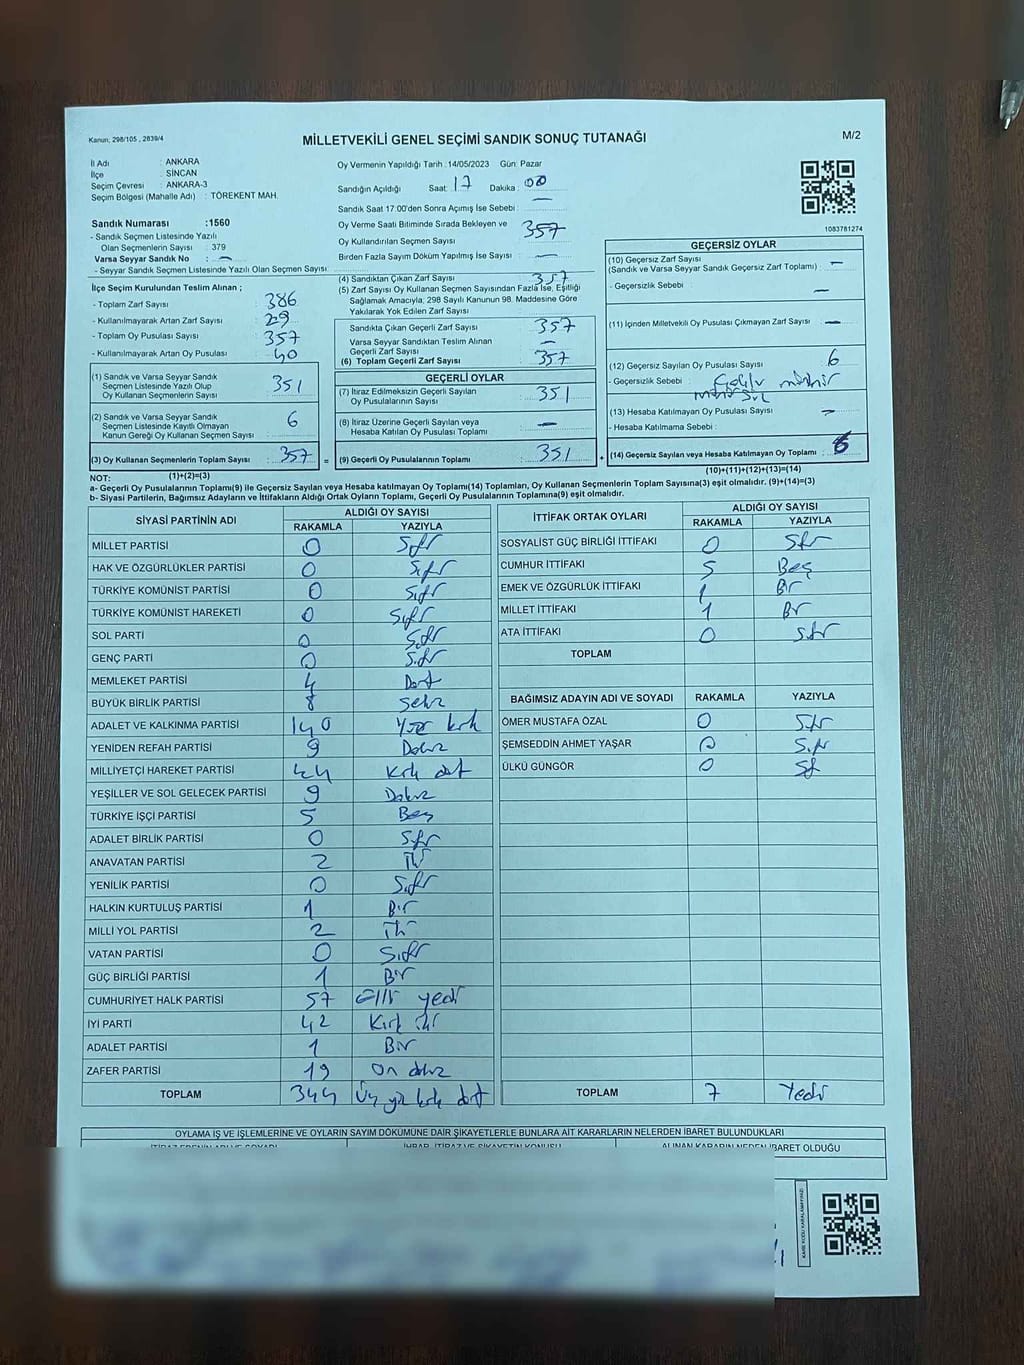 Kanun; 298/105 , 2839/4
MİLLETVEKİLİ GENEL SEÇİMİ SANDIK SONUÇ TUTANAĞI
M/2
İl Adı : ANKARA
İlçe : SİNCAN
Seçim Çevresi : ANKARA-3
Seçim Bölgesi (Mahalle Adı) : TÖREKENT MAH.
Oy Vermenin Yapıldığı Tarih : 14/05/2023 Gün: Pazar
Sandığın Açıldığı Saat: 17 Dakika : 00
Sandık Saat 17:00'den Sonra Açımış İse Sebebi : —
Sandık Numarası :1560
- Sandık Seçmen Listesinde Yazılı
Olan Seçmenlerin Sayısı : 379
Varsa Seyyar Sandık No : —
- Seyyar Sandık Seçmen Listesinde Yazılı Olan Seçmen Sayısı
Oy Verme Saati Bitiminde Sırada Bekleyen ve
Oy Kullandırılan Seçmen Sayısı 357
Birden Fazla Sayım Döküm Yapılmış İse Sayısı : —
1083781274
İlçe Seçim Kurulundan Teslim Alınan ;
- Toplam Zarf Sayısı : 386
- Kullanılmayarak Artan Zarf Sayısı : 29
- Toplam Oy Pusulası Sayısı : 357
- Kullanılmayarak Artan Oy Pusulası : 40
(1) Sandık ve Varsa Seyyar Sandık
Seçmen Listesinde Yazılı Olup
Oy Kullanan Seçmenlerin Sayısı : 351
(2) Sandık ve Varsa Seyyar Sandık
Seçmen Listesinde Kayıtlı Olmayan
Kanun Gereği Oy Kullanan Seçmen Sayısı : 6
(3) Oy Kullanan Seçmenlerin Toplam Sayısı : 357 =
(4) Sandıktan Çıkan Zarf Sayısı : 357
(5) Zarf Sayısı Oy Kullanan Seçmen Sayısından Fazla İse, Eşitliği
Sağlamak Amacıyla; 298 Sayılı Kanunun 98. Maddesine Göre
Yakılarak Yok Edilen Zarf Sayısı :
Sandıkta Çıkan Geçerli Zarf Sayısı : 357
Varsa Seyyar Sandıktan Teslim Alınan
Geçerli Zarf Sayısı : —
(6) Toplam Geçerli Zarf Sayısı : 357
GEÇERLİ OYLAR
(7) İtiraz Edilmeksizin Geçerli Sayılan
Oy Pusulalarının Sayısı : 351
(8) İtiraz Üzerine Geçerli Sayılan veya
Hesaba Katılan Oy Pusulası Toplamı : —
(9) Geçerli Oy Pusulalarının Toplamı : 351 +
GEÇERSİZ OYLAR
(10) Geçersiz Zarf Sayısı
(Sandık ve Varsa Seyyar Sandık Geçersiz Zarf Toplamı) : —
- Geçersizlik Sebebi : —
(11) İçinden Milletvekili Oy Pusulası Çıkmayan Zarf Sayısı : —
(12) Geçersiz Sayılan Oy Pusulası Sayısı : 6
- Geçersizlik Sebebi :
(13) Hesaba Katılmayan Oy Pusulası Sayısı : —
- Hesaba Katılmama Sebebi :
(14) Geçersiz Sayılan veya Hesaba Katılmayan Oy Toplamı : 6
NOT: (1)+(2)=(3)
(10)+(11)+(12)+(13)=(14)
a- Geçerli Oy Pusulalarının Toplamı(9) ile Geçersiz Sayılan veya Hesaba katılmayan Oy Toplamı(14) Toplamları, Oy Kullanan Seçmenlerin Toplam Sayısına(3) eşit olmalıdır. (9)+(14)=(3)
b- Siyasi Partilerin, Bağımsız Adayların ve İttifakların Aldığı Ortak Oyların Toplamı, Geçerli Oy Pusulalarının Toplamına(9) eşit olmalıdır.
SİYASİ PARTİNİN ADI ALDIĞI OY SAYISI
RAKAMLA YAZIYLA
MİLLET PARTİSİ 0 Sıfır
HAK VE ÖZGÜRLÜKLER PARTİSİ 0 Sıfır
TÜRKİYE KOMÜNİST PARTİSİ 0 Sıfır
TÜRKİYE KOMÜNİST HAREKETİ 0 Sıfır
SOL PARTİ 0 Sıfır
GENÇ PARTİ 0 Sıfır
MEMLEKET PARTİSİ 4 Dört
BÜYÜK BİRLİK PARTİSİ 8 Sekiz
ADALET VE KALKINMA PARTİSİ 140 Yüz kırk
YENİDEN REFAH PARTİSİ 9 Dokuz
MİLLİYETÇİ HAREKET PARTİSİ 44 Kırk dört
YEŞİLLER VE SOL GELECEK PARTİSİ 9 Dokuz
TÜRKİYE İŞÇİ PARTİSİ 5 Beş
ADALET BİRLİK PARTİSİ 0 Sıfır
ANAVATAN PARTİSİ 2 İki
YENİLİK PARTİSİ 0 Sıfır
HALKIN KURTULUŞ PARTİSİ 1 Bir
MİLLİ YOL PARTİSİ 2 İki
VATAN PARTİSİ 0 Sıfır
GÜÇ BİRLİĞİ PARTİSİ 1 Bir
CUMHURİYET HALK PARTİSİ 57 Elli yedi
İYİ PARTİ 42 Kırk iki
ADALET PARTİSİ 1 Bir
ZAFER PARTİSİ 19 On dokuz
TOPLAM 344 Üç yüz kırk dört
İTTİFAK ORTAK OYLARI ALDIĞI OY SAYISI
RAKAMLA YAZIYLA
SOSYALİST GÜÇ BİRLİĞİ İTTİFAKI 0 Sıfır
CUMHUR İTTİFAKI 5 Beş
EMEK VE ÖZGÜRLÜK İTTİFAKI 1 Bir
MİLLET İTTİFAKI 1 Bir
ATA İTTİFAKI 0 Sıfır
TOPLAM
BAĞIMSIZ ADAYIN ADI VE SOYADI RAKAMLA YAZIYLA
ÖMER MUSTAFA ÖZAL 0 Sıfır
ŞEMSEDDİN AHMET YAŞAR 0 Sıfır
ÜLKÜ GÜNGÖR 0 Sıfır
TOPLAM 7 Yedi
OYLAMA İŞ VE İŞLEMLERİNE VE OYLARIN SAYIM DÖKÜMÜNE DAİR ŞİKAYETLERLE BUNLARA AİT KARARLARIN NELERDEN İBARET BULUNDUKLARI
İTİRAZ EDENİN ADI VE SOYADI İHBAR, İTİRAZ VE ŞİKAYETİN KONUSU ALINAN KARARIN NEDEN İBARET OLDUĞU